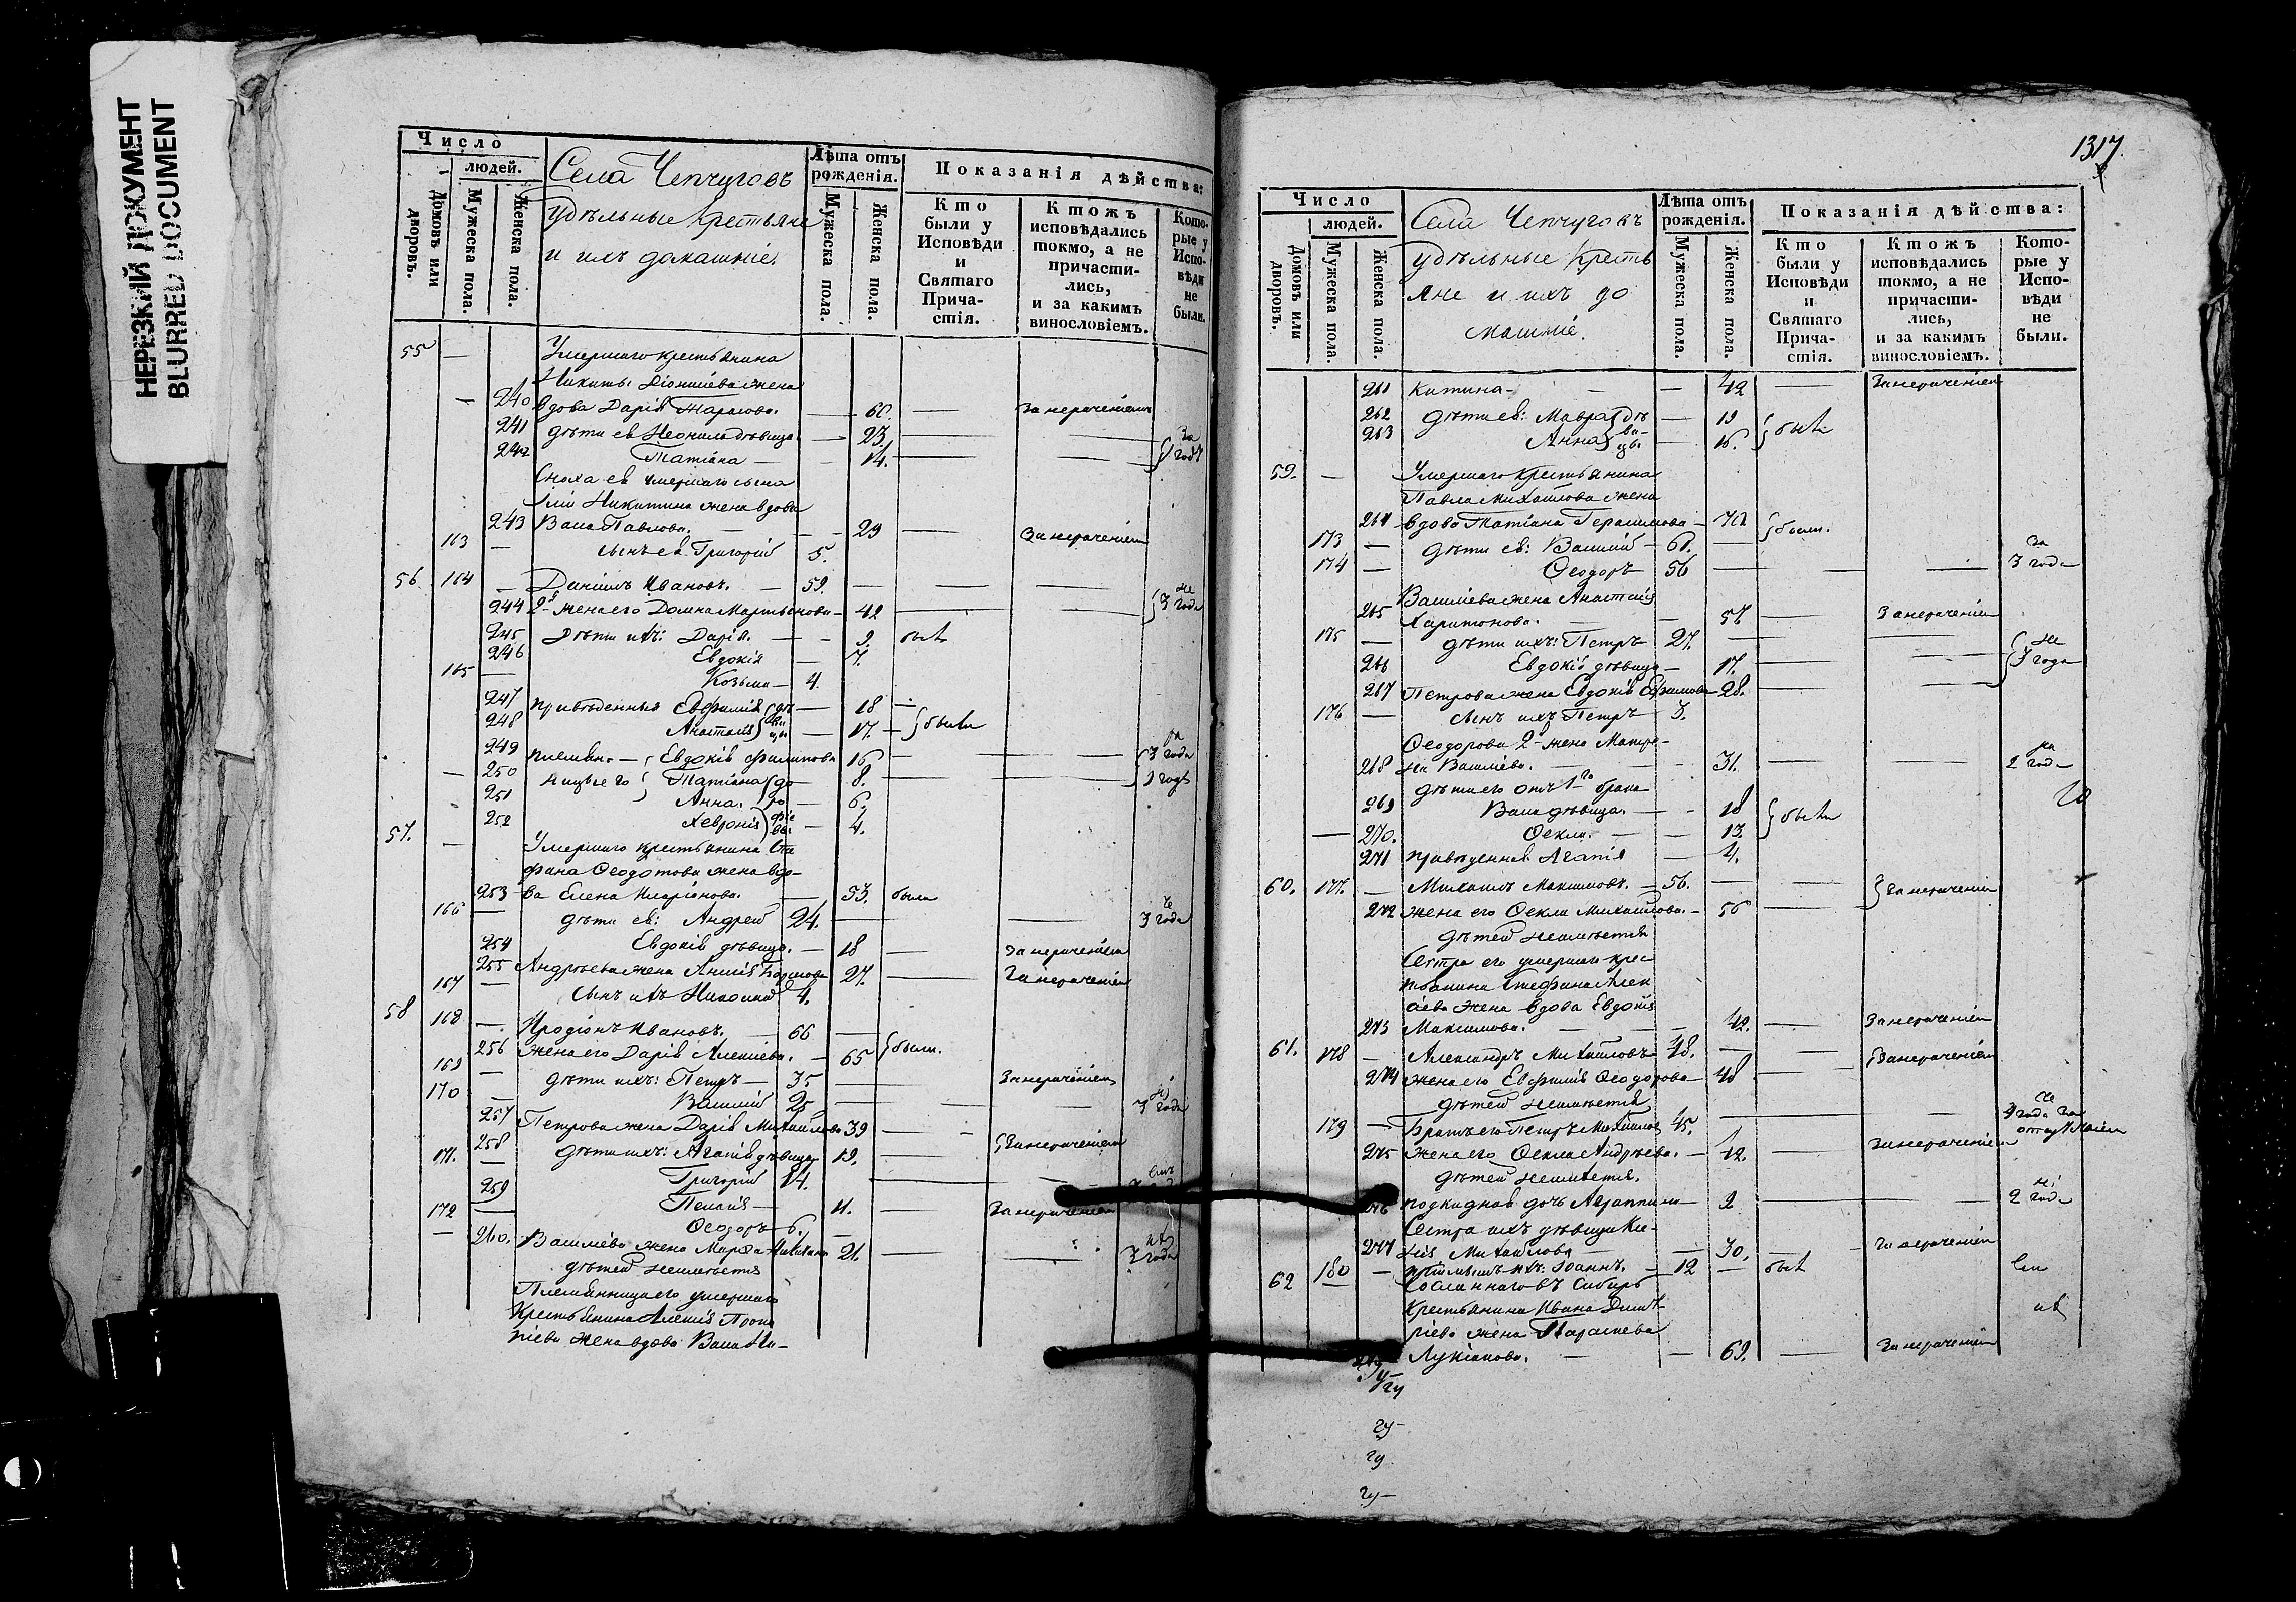 НЕРЕЗКИЙ ДОКУМЕНТ
BLURRED DOCUMENT
Число
людей.
Домовъ или дворовъ.
Мужеска пола.
Женска пола.
Села Чепчуговъ
удѣльные крестьяне
и ихъ домашніе.
Лѣта отъ рожденія.
Мужеска пола.
Женска пола.
Показанія дѣйства:
Кто были у Исповѣди и Святаго Причастія.
Ктожъ исповѣдались токмо, а не причастились, и за какимъ винословіемъ.
Которые у Исповѣди не были.
55 — Умершаго крестьянина
Никиты Діонисіева жена
240 вдова Дарія Тарасова. — 60. — За нерачениемъ
241 дѣти ея Неонила дѣвица — 23. —
242 Татіана — 14. — За годъ
Сноха ея умершаго сына
Никитина жена вдова
243 Васса Павлова. — 29 — За нерачениемъ
163 — сынъ ея Григорій 5.
56. 164 — Даніилъ Ивановъ. — 59. —
244 2я жена его Домна Мартынова — 42 — 3 года
245 Дѣти ихъ: Дарія. — 9. были
246 Евдокія — 7.
165 — Козьма — 4.
247 приведенныя Евфимія — 18 —
248 Анастасія — 17. — были
249 племян- Евдокія Филипова 16 — 3 года
250 ницы его Татіана — 8. — годъ
251 Анна. — 6.
252 Хевронія — 4.
57. — Умершаго крестьянина Сте
фана Ѳеодотова жена вдо-
253 ва Елена Иларіонова. — 53. была
166 — дѣти ея: Андрей 24. — 3 года
254 Евдокія дѣвица. — 18 — За нерачениемъ
255 Андреева жена Анисія Борисова 27. — За нерачениемъ
167 — сынъ ихъ Николай 4.
58 168 — Иродіонъ Ивановъ. — 66 —
256 жена его Дарія Алексіева. — 65 были.
169 — дѣти ихъ: Петръ — 35 — За нерачениемъ
170 — Василій 25 — 3 года
257 Петрова жена Дарія Михайлова 39 —
258 дѣти ихъ: Агапія дѣвица 19. — За нерачениемъ
171. — Григорій 14.
259 Пелагія — 11. — За нерачениемъ
172 — Ѳеодоръ — 6.
260. Василіева жена Марѳа 21. — 3 года
дѣтей неимѣетъ
Племянница его умершаго
Крестьянина Алексія Проко
піева жена вдова Васса Ни-
1317.
Число
людей.
Домовъ или дворовъ.
Мужеска пола.
Женска пола.
Села Чепчуговъ
удѣльные кресть
яне и ихъ до
машніе.
Лѣта отъ рожденія.
Мужеска пола.
Женска пола.
Показанія дѣйства:
Кто были у Исповѣди и Святаго Причастія.
Ктожъ исповѣдались токмо, а не причастились, и за какимъ винословіемъ.
Которые у Исповѣди не были.
261 китина — — 42 — За нерачениемъ
262 дѣти ея: Мавра — 19
263 Анна — 16. были
59. — Умершаго крестьянина
Павла Михайлова жена
264 вдова Татіана Герасимова —
были.
173 — дѣти ея: Василій — 61. —
174 — Ѳеодоръ 56 — За 3 года
Василіева жена Анастасія
265 Харитонова. — 57 — За нерачениемъ
175 — дѣти ихъ: Петръ 27. —
266 Евдокія дѣвица — 17. — 3 года
267 Петрова жена Евдокія Ефимова 28. —
176 — сынъ ихъ Петръ — 3.
Ѳеодорова 2я жена Матро-
268 на Василіева. — 31. — 2 года
дѣти его отъ 1го брака
269 Васса дѣвица. — 18 были
— 270. Ѳекла. — 13.
271 приведенная Агапія — 4.
60. 177. — Михаилъ Максимовъ. — 56. — За нерачениемъ
272 жена его Ѳекла Михайлова. — 56 —
дѣтей неимѣетъ
Сестра его умершаго крес
тьянина Стефана Алек
сіева жена вдова Евдокія
273 Максимова. — 42. — За нерачениемъ
61. 178 — Александръ Михайловъ 48. — За нерачениемъ
274 жена его Евфимія Ѳеодорова — 48
дѣтей неимѣетъ
179 — Братъ его Петръ Михайловъ 45. — года за отлучкою
275 жена его Ѳекла Андреева. — 42. — За нерачениемъ
дѣтей неимѣетъ.
276 подкидная дочь Агриппина — 2 — 2 года
Сестра ихъ дѣвица Ксе-
277 нія Михайлова — 30. — За нерачениемъ
62 180 — Іоаннъ. — 12 — былъ
Сосланнаго въ Сибирь
Крестьянина Ивана Димит
ріева жена Параскева
Лукіанова. — 69. — За нерачениемъ